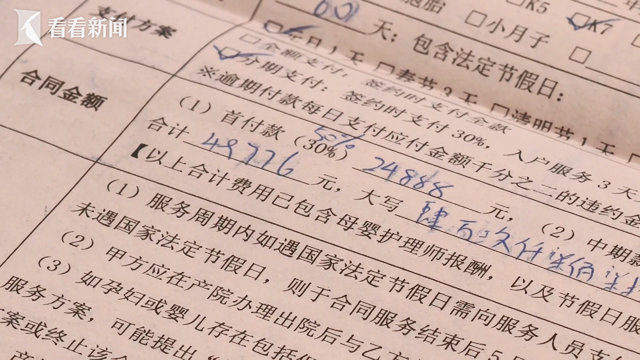 看看新闻
支付方案
合同金额
胞胎 □K5 ☑K7
001 天：□小月子
包含法定节假日：
☑元旦1天 □春节3天 □清明节1天
□全额支付：签约时支付全款
☑分期支付：签约时支付30%，入户服务3天
※逾期付款每日支付应付金额千分之二的违约金
（1）首付款（30%）50% 24888 元，（2）中期款
合计 49776 元，大写 肆万玖仟柒佰柒拾
【以上合计费用已包含母婴护理师报酬，以及节假日服
（1）服务周期内如遇国家法定节假日需向服务人员支
未遇国家法定节假日，则于合同服务结束后5
（2）甲方应在产院办理出院后与乙方
（3）如孕妇或婴儿存在包括
服务方案，可能提出“
案或终止该合